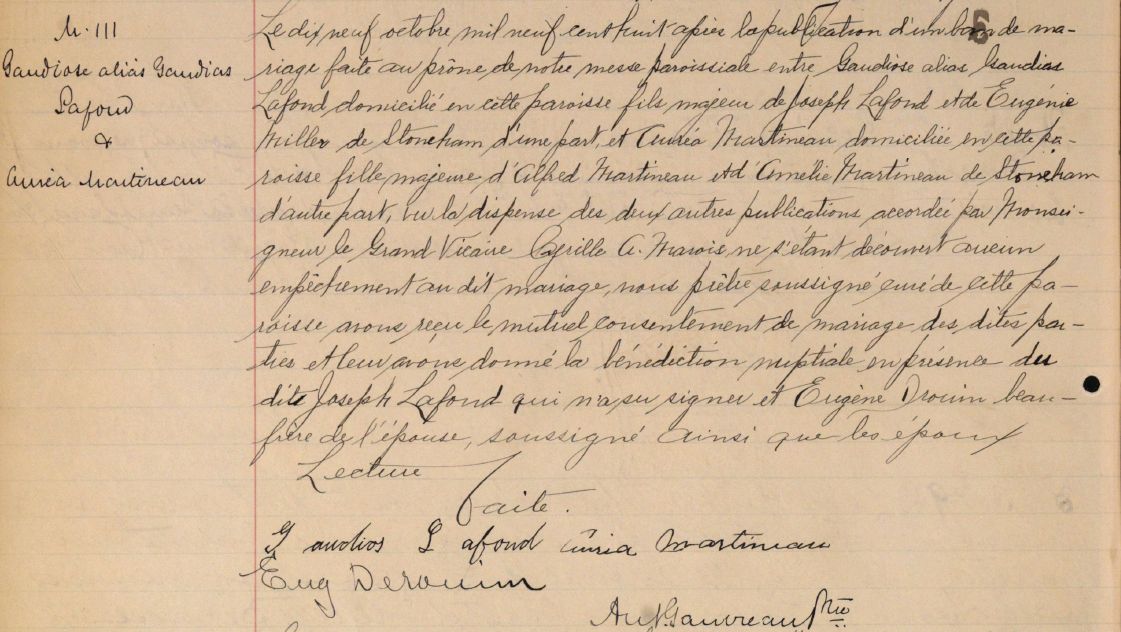 M. 111
Gaudiose alias Gaudias
Lafond
&
Auréa Martineau
Le dix neuf octobre mil neuf cent huit après la publication d'un ban de ma-
riage faite au prône de notre messe paroissiale entre Gaudiose alias Gaudias
Lafond domicilié en cette paroisse fils majeur de Joseph Lafond et de Eugénie
Miller de Stoneham d'une part, et Auréa Martineau domiciliée en cette pa-
roisse fille majeure d'Alfred Martineau et d'Amélie Martineau de Stoneham
d'autre part, vu la dispense des deux autres publications accordée par Monsei-
gneur le Grand Vicaire Cyrille A. Marois, ne s'étant découvert aucun
empêchement au dit mariage, nous prêtre soussigné curé de cette pa-
roisse avons reçu le mutuel consentement de mariage des dites par-
ties et leur avons donné la bénédiction nuptiale en présence des
dits Joseph Lafond qui n'a su signer et Eugène Drouin beau-
frère de l'épouse, soussigné ainsi que les époux
Lecture
faite.
Gaudios Lafond Auria Martineau
Eug Derouin
Ant. Gauvreau Ptre